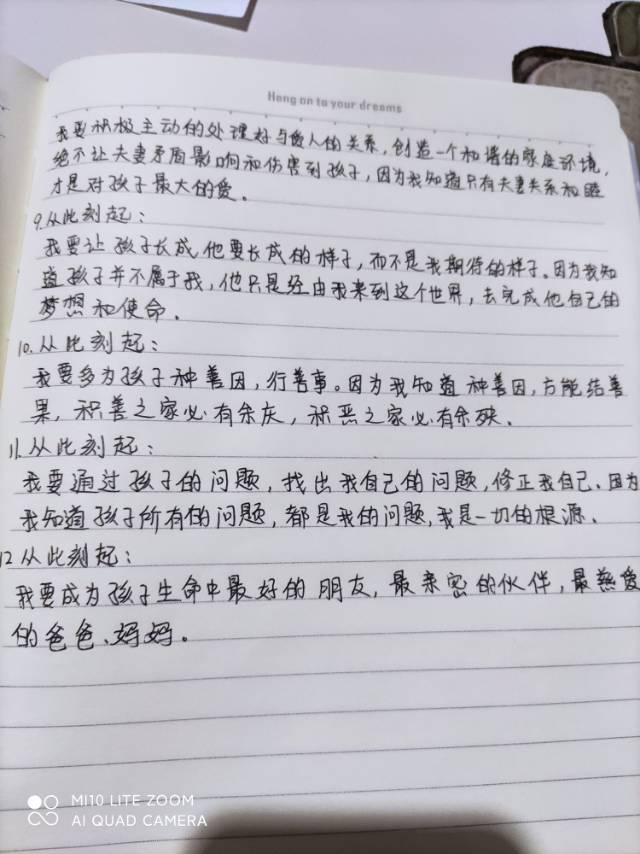 Hang on to your dreams
我要积极主动的处理好与爱人的关系,创造一个和谐的家庭环境,
绝不让夫妻矛盾影响和伤害到孩子,因为我知道只有夫妻关系和睦
才是对孩子最大的爱。
9.从此刻起:
我要让孩子长成他要长成的样子,而不是我期待的样子。因为我知
道孩子并不属于我,他只是经由我来到这个世界,去完成他自己的
梦想和使命.
10.从此刻起:
我要多为孩子种善因,行善事。因为我知道种善因,方能结善
果,积善之家必有余庆,积恶之家必有余殃.
11.从此刻起:
我要通过孩子的问题,找出我自己的问题,修正我自己.因为
我知道孩子所有的问题,都是我的问题,我是一切的根源.
12从此刻起:
我要成为孩子生命中最好的朋友,最亲密的伙伴,最慈爱
的爸爸、妈妈。
MI10 LITE ZOOM
AI QUAD CAMERA